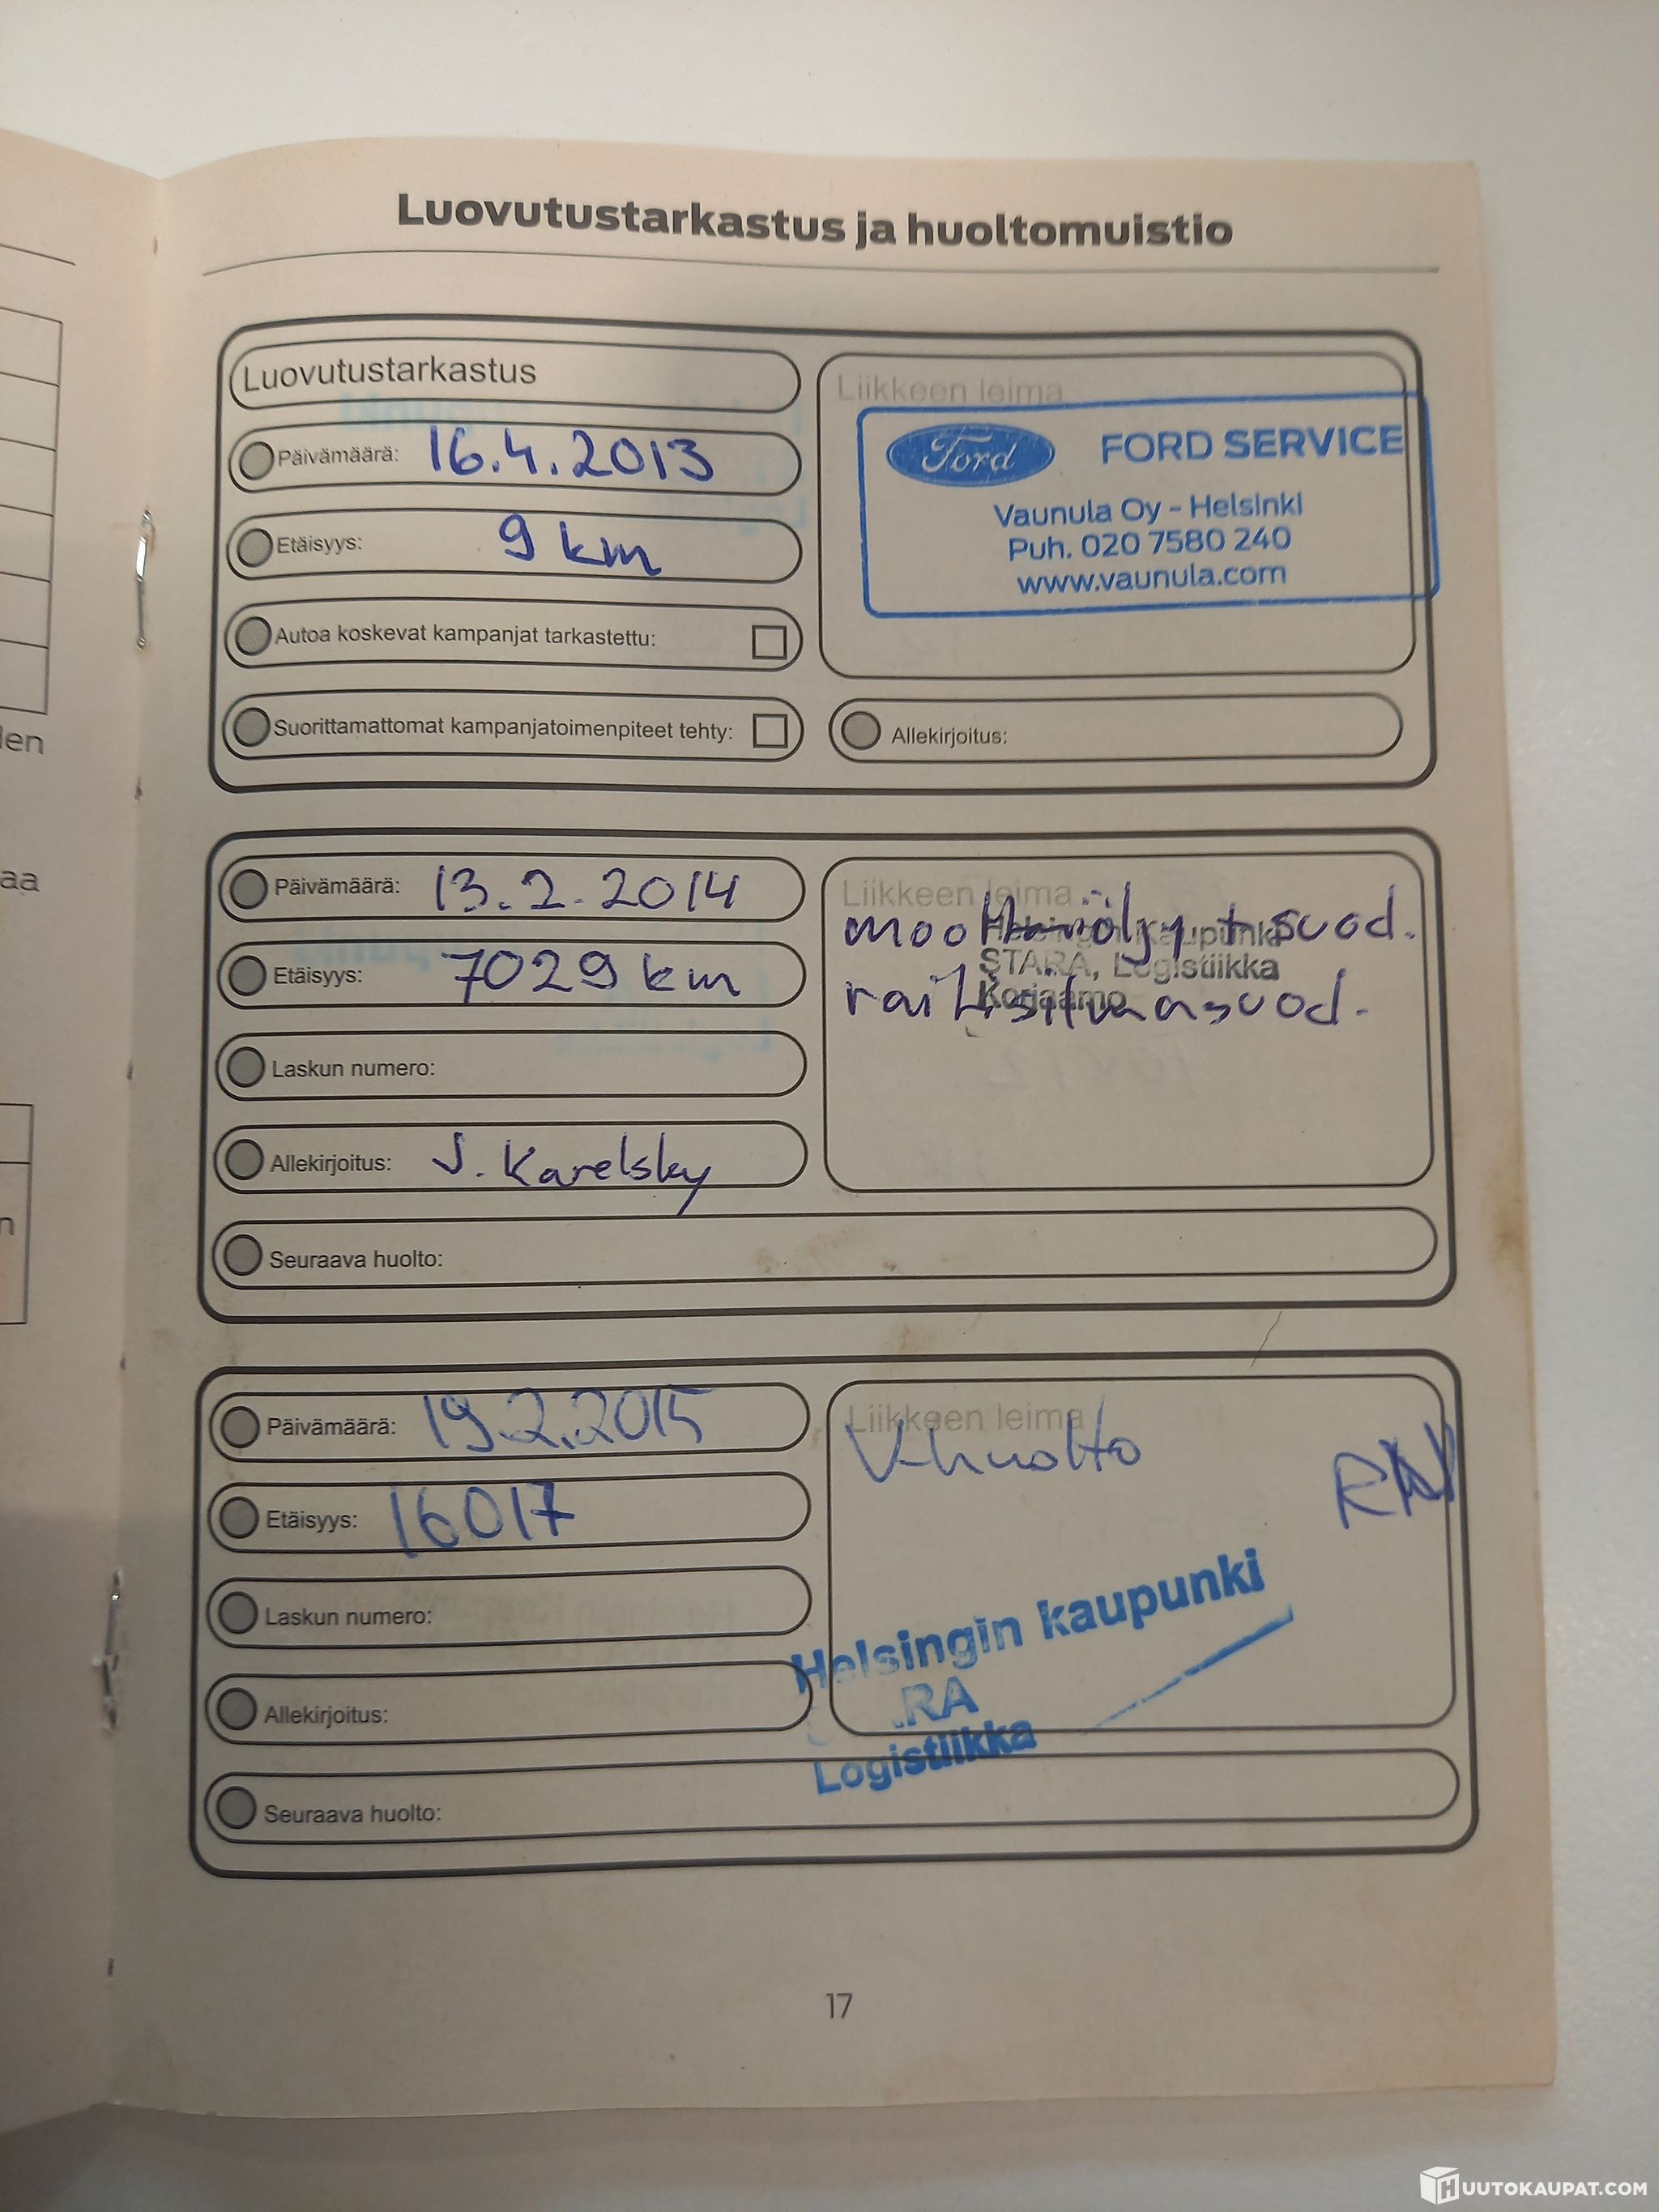 Luovutustarkastus ja huoltomuistio
Luovutustarkastus
Päivämäärä: 16.4.2013
Etäisyys: 9 km
Autoa koskevat kampanjat tarkastettu:
Suorittamattomat kampanjatoimenpiteet tehty:
Liikkeen leima
Ford FORD SERVICE
Vaunula Oy - Helsinki
Puh. 020 7580 240
www.vaunula.com
Allekirjoitus:
Päivämäärä: 13.2.2014
Etäisyys: 7029 km
Laskun numero:
Allekirjoitus: J. Karelsky
Liikkeen leima
moottoriöljy + suod.
raitisilmasuod.
Helsingin Kaupunki
STARA, Logistiikka
Korjaamo
Seuraava huolto:
Päivämäärä: 19.2.2015
Etäisyys: 16017
Laskun numero:
Allekirjoitus:
Liikkeen leima
V-huolto
Helsingin kaupunki
RA
Logistiikka
Seuraava huolto:
17
len
aa
n
HUUTOKAUPAT.COM